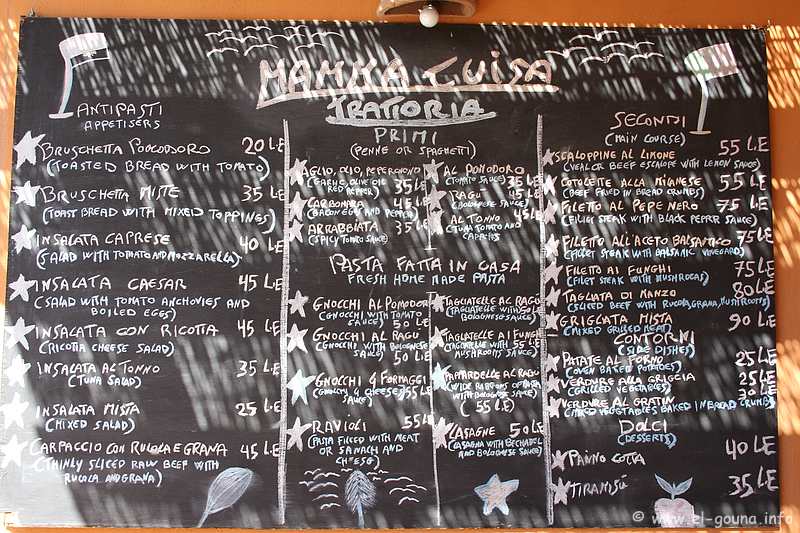 MAMMA LUISA
TRATTORIA
ANTIPASTI
APPETISERS
BRUSCHETTA POMODORO 20 LE
(TOASTED BREAD WITH TOMATO)
BRUSCHETTA MISTE 35 LE
(TOAST BREAD WITH MIXED TOPPINGS)
INSALATA CAPRESE 40 LE
(SALAD WITH TOMATO AND MOZZARELLA)
INSALATA CAESAR 45 LE
(SALAD WITH TOMATO ANCHOVIES AND
BOILED EGGS)
INSALATA CON RICOTTA 45 LE
(RICOTTA CHEESE SALAD)
INSALATA AL TONNO 35 LE
(TUNA SALAD)
INSALATA MISTA 25 LE
(MIXED SALAD)
CARPACCIO CON RUCOLA E GRANA 45 LE
(THINLY SLICED RAW BEEF WITH
RUCOLA AND GRANA)
PRIMI
(PENNE OR SPAGHETTI)
AGLIO, OLIO, PEPERONCINO
(GARLIC, OLIVE OIL
RED PEPPER) 35 LE
CARBONARA 45 LE
(BACON EGGS AND PEPPER)
ARRABBIATA 35 LE
(SPICY TOMATO SAUCE)
AL POMODORO
(TOMATO SAUCE) 35 LE
RAGU 45 LE
(BOLOGNESE SAUCE)
AL TONNO 45 LE
(TUNA TOMATO AND
CAPERS)
PASTA FATTA IN CASA
FRESH HOME MADE PASTA
GNOCCHI AL POMODORO
(GNOCCHI WITH TOMATO
SAUCE) 50 LE
GNOCCHI AL RAGU
(GNOCCHI WITH BOLOGNESE
SAUCE) 50 LE
GNOCCHI 4 FORMAGGI
(GNOCCHI 4 CHEESE SAUCE) 55 LE
RAVIOLI 55 LE
(PASTA FILLED WITH MEAT
OR SPINACH AND
CHEESE)
TAGLIATELLE AL RAGU
(TAGLIATELLE WITH 50 LE
BOLOGNESO SAUCE)
TAGLIATELLE AI FUNGHI
(TAGLIATELLE WITH 55 LE
MUSHROOMS SAUCE)
PAPPARDELLE AL RAGU
(WIDE RIBBONS OF PASTA
WITH BOLOGNESE SAUCE)
(55 LE)
LASAGNE 50 LE
(LASAGNA WITH BECHAMEL
AND BOLOGNESE SAUCE)
SECONDI
(MAIN COURSE)
SCALOPPINE AL LIMONE 55 L.E
(VEAL OR BEEF ESCALOPE WITH LEMON SAUCE)
COTOLETTE ALLA MILANESE 55 L.E
(BEEF FRIED IN BREAD CRUMBS)
FILETTO AL PEPE NERO 75 LE
(FILLET STEAK WITH BLACK PEPPER SAUCE)
FILETTO ALL'ACETO BALSAMICO 75 LE
(FILLET STEAK WITH BALSAMIC VINEGARD)
FILETTO AI FUNGHI 75 LE
(FILET STEAK WITH MUSHROOMS)
TAGLIATA DI MANZO 80 LE
(SLICED BEEF WITH RUCOLA, GRANA, MUSHROOMS)
GRIGLIATA MISTA 90 L.E
(MIXED GRILLED MEAT)
CONTORNI
(SIDE DISHES)
PATATE AL FORNO 25 LE
(OVEN BAKED POTATOES)
VERDURE ALLA GRIGLIA 25 LE
(GRILLED VEGETABLES)
VERDURE AL GRATIN 30 LE
(MIXED VEGETABLES BAKED IN BREAD CRUMBS)
DOLCI
(DESSERTS)
PANNO COTTA 40 LE
TIRAMISÚ 35 LE
© www.el-gouna.info